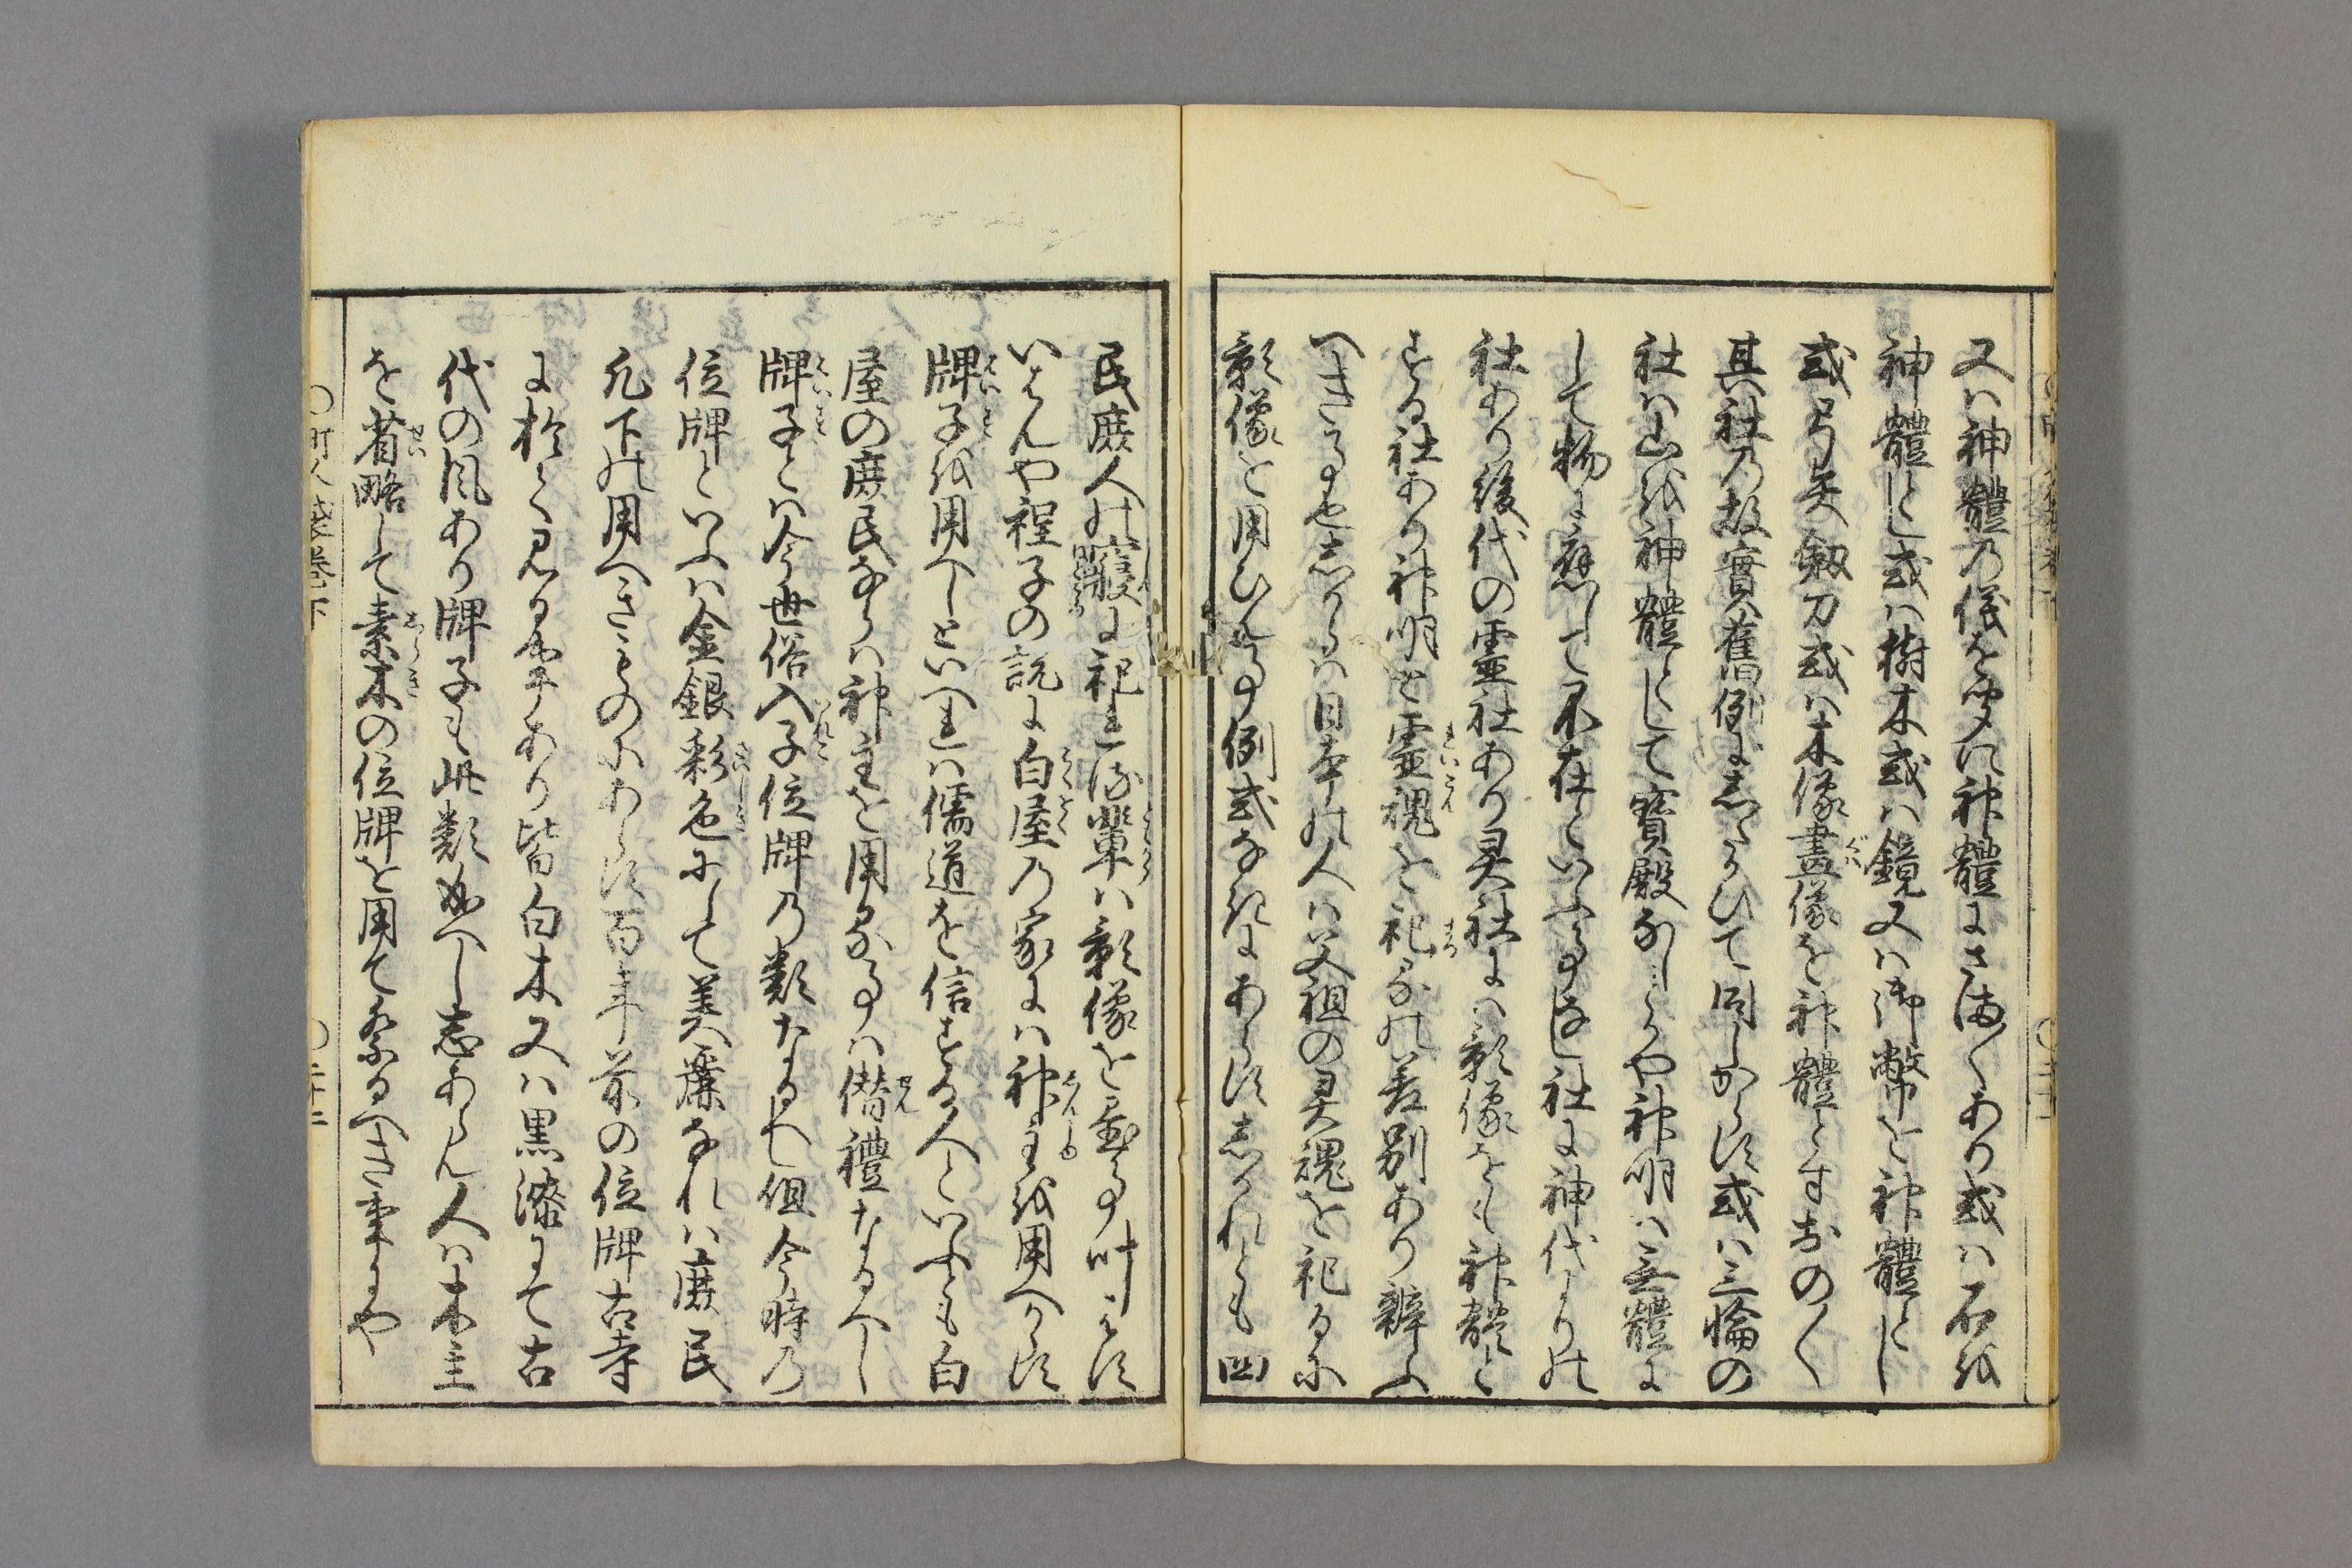 又ハ神體乃儀を聞に神體にさま〳〵あり或ハ石を
神體とし或ハ樹木或ハ鏡又ハ御幣を神體とし
或弓矢劔刀或ハ木像畫像を神體とすおの〳〵
其社乃故實舊例にしたかひて同しからす或ハ三輪の
社ハ山を神體として寳殿なしとかや神明ハ無體に
して物に應して不在といふ事なし社に神代よりの
社あり後代の霊社あり灵社にハ影像をも神體と
する社あり神明と霊魂を祀るの差別あり辨ふ
へき事也しからハ日本の人ハ父祖の灵魂を祀るに
影像を用ひたる事例式なきにあらすしかれとも四
民庶人の寢に祀れる輩ハ影像を畫事叶はす
いはんや程子の説に白屋乃家にハ神主を用へからす
牌子を用へしといへれハ儒道を信する人といふとも白
屋の庶民ならハ神主を用る事ハ僭禮なるへし
牌子とハ今世俗入子位牌乃類なるへし但今時乃
位牌といふハ金銀彩色にして美麗なれハ庶民
凡下の用へきものにあらす百年前の位牌古寺
に於て見る事あり皆白木又ハ黒漆にて古
代の風あり牌子も此類成へし志あらん人ハ木主
を省略して素木の位牌を用て祭るへき事にや
町人嚢巻下